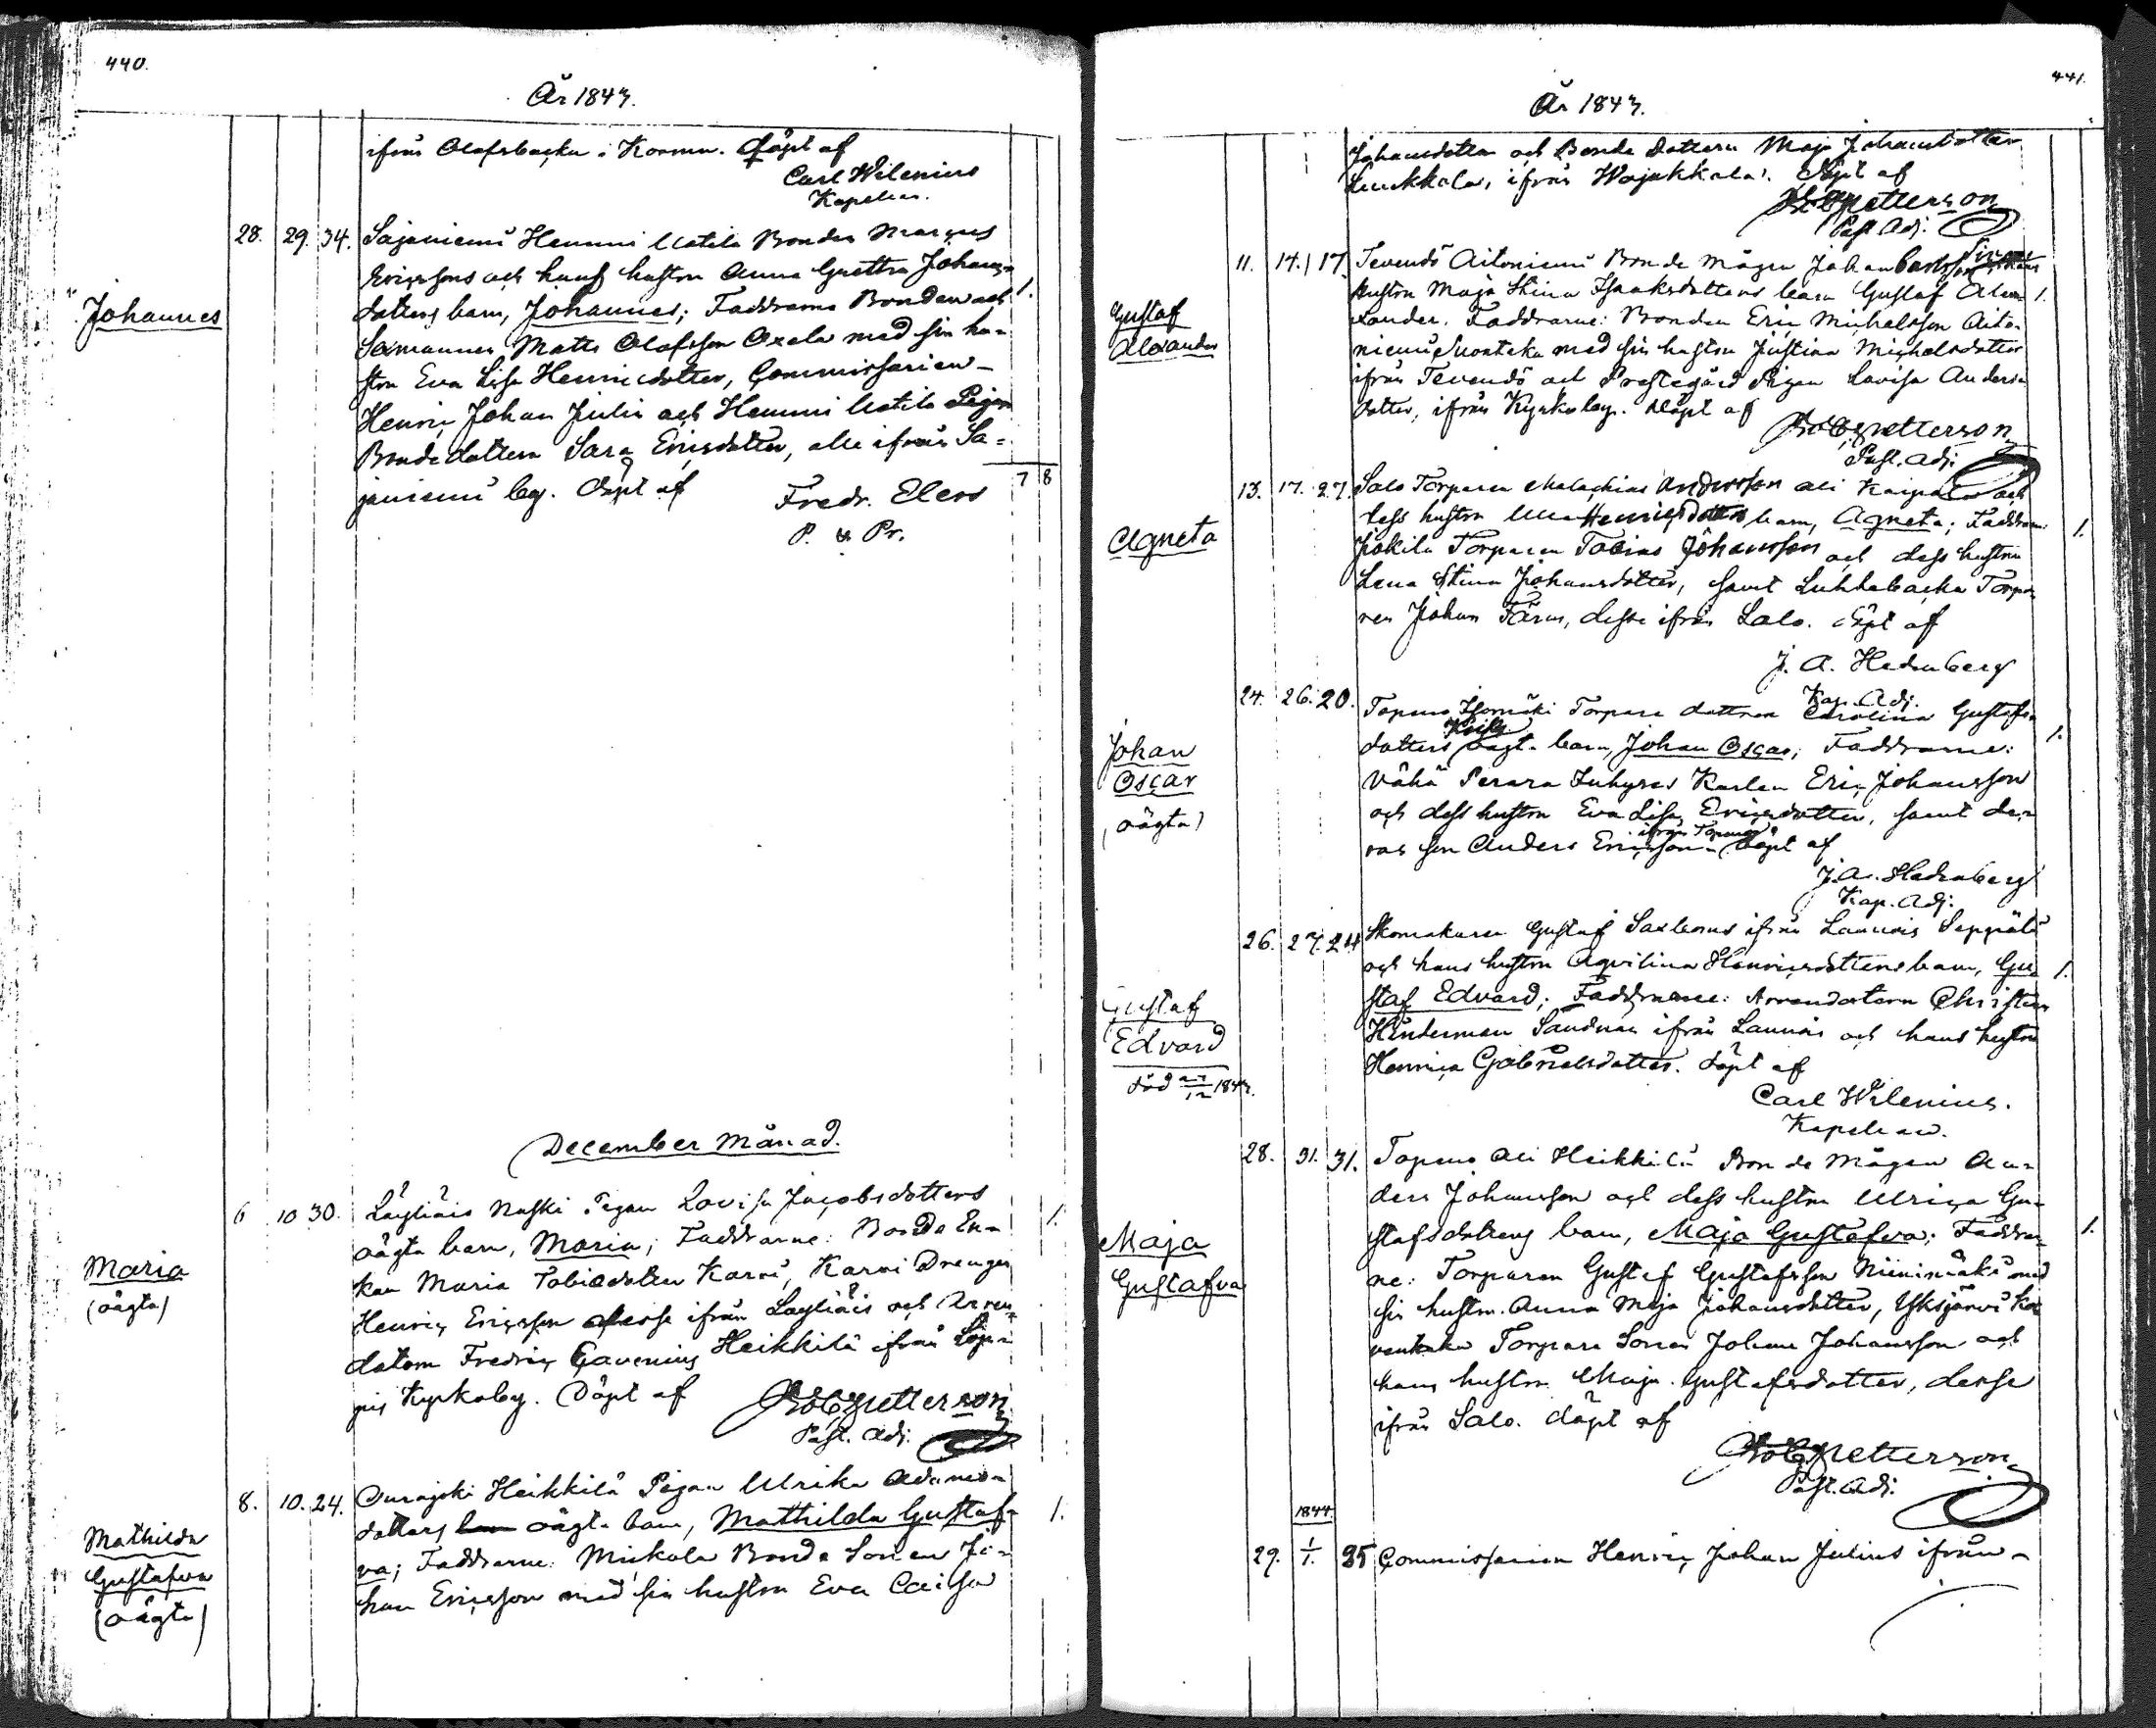 440.
År 1843.
ifrån Olafsbacka i Kormu. Döpt af
Carl Wilenius
Kapellan.
28. 29. 34. Sajaniemi Hemmi Uotila Bonden Marcus
Ericssons och hans hustru Anna Grettha Johans-
Johannes
dotters barn, Johannes; Faddrarne Bonden och 1.
Sexmannen Matts Olofsson Oxala med sin hu-
stru Eva Lisa Henricsdotter, Commissarien
Henric Johan Julin och Hemmi Uotila Pigan
Bondedottern Sara Ericsdotter, alla ifrån Sa-
janiemi by. Döpt af
7 8
Fredr. Elers
P. & Pr.
December Månad.
6 10 30. Läyliäis Naski Pigan Lovisa Jacobsdotters
oägta barn, Maria; Faddrarne: Bonde En- 1.
Maria
(oägta)
kan Maria Tobiedotter Karni, Karni Drengen
Henric Ericsson desse ifrån Läyliäis och Arren-
datorn Fredric Gavenius Heikkilä ifrån Loppis
Kyrkoby. Döpt af
Petterson
Past. Adj.
8. 10. 24. Ourajoki Heikkilä Pigan Ulrika Adams-
dotters oägta barn, Mathilda Gustaf- 1.
Mathilda
Gustafva
(oägta)
va; Faddrarne: Mickola Bonde Sonen Jo-
han Ericsson med sin hustru Eva Caisa
441.
År 1843.
Johansdotter och Bonde dottern Maja Johansdotter
Luukkala, ifrån Wojakkala. Döpt af
Petterson
Past. Adj.
11. 14. 17. Tevändö Aitoniemi Bonde mågen Johan
hustru Maja Stina Isaksdotters barn Gustaf Alex- 1.
Gustaf
Alexander
xander. Faddrarne: Bonden Eric Michelsson Aito-
niemi med sin hustru Justina Michelsdotter
ifrån Tevändö och Prestegård Pigan Lovisa Anders-
dotter, ifrån Kyrkoby. Döpt af
Petterson
Past. Adj.
13. 17. 27. Salo Torparen Malachias Andersson Ali och
dess hustru Ulla Henricsdotters barn, Agneta; Faddrar: 1.
Agneta
Jokila Torparen Tobias Johansson och dess hustru
Lena Stina Johansdotter, samt Luhtabacka Torpa-
ren Johan Färm, desse ifrån Salo. Döpt af
J. A. Hedenberg
Kap. Adj.
24. 26. 20. Topeno Isomäki Torpare dottren Carolina Gustafs-
dotters oägta barn, Johan Oscar; Faddrarne: 1.
Johan
Oscar
(oägta)
Vähä Perara Inhyses Karlen Eric Johansson
och dess hustru Eva Lisa Ericsdotter, samt de-
ras son Anders Ericsson ifrån Topeno Döpt af
J. A. Hedenberg
Kap. Adj.
26. 27. 24 Skomakaren Gustaf Saxbom ifrån Launois Seppälä
och hans hustru Aqvilina Henricsdotters barn, Gu- 1.
Gustaf
Edvard
född 27/12 1843.
staf Edvard; Faddrarne: Arrendatorn Christian
Hinderman Sandnas ifrån Launois och hans hustru
Henrica Gabrielsdotter. Döpt af
Carl Wilenius.
Kapellan.
28. 31. 31. Topeno Ali Heikkilä Bonde Mågen An-
ders Johansson och dess hustru Ulrica Gu-
stafsdotters barn, Maja Gustafva; Faddrar- 1.
Maja
Gustafva
ne: Torparen Gustaf Gustafsson Niinimäki med
sin hustru Anna Maja Johansdotter, Yksjärvi
Torpare Sonen Johan Johansson och
hans hustru Maja Gustafsdotter, desse
ifrån Salo. döpt af
Petterson
Past. Adj.
1844.
29. 1/1. 25 Commissarien Henric Johan Julius ifrån